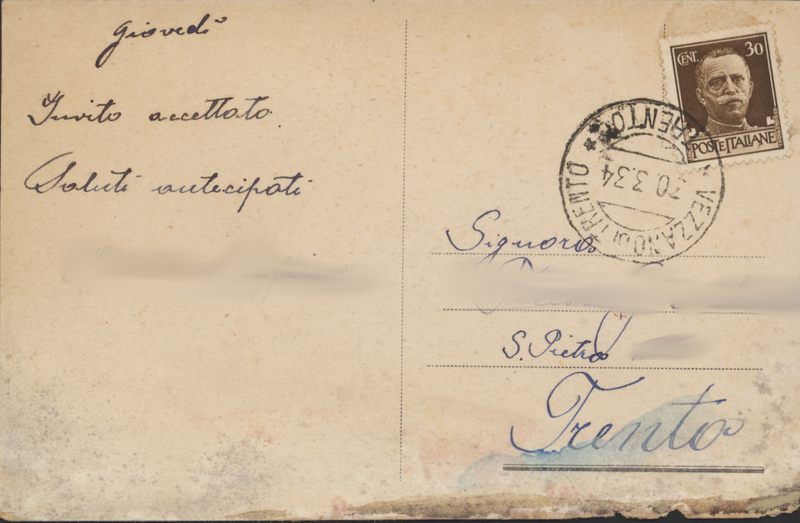 giovedì
Invito accettato
Saluti antecipati
CENT. 30
POSTE ITALIANE
VEZZANO DI TRENTO * * TRENTO *
30.3.34
Signora
S. Pietro
Trento